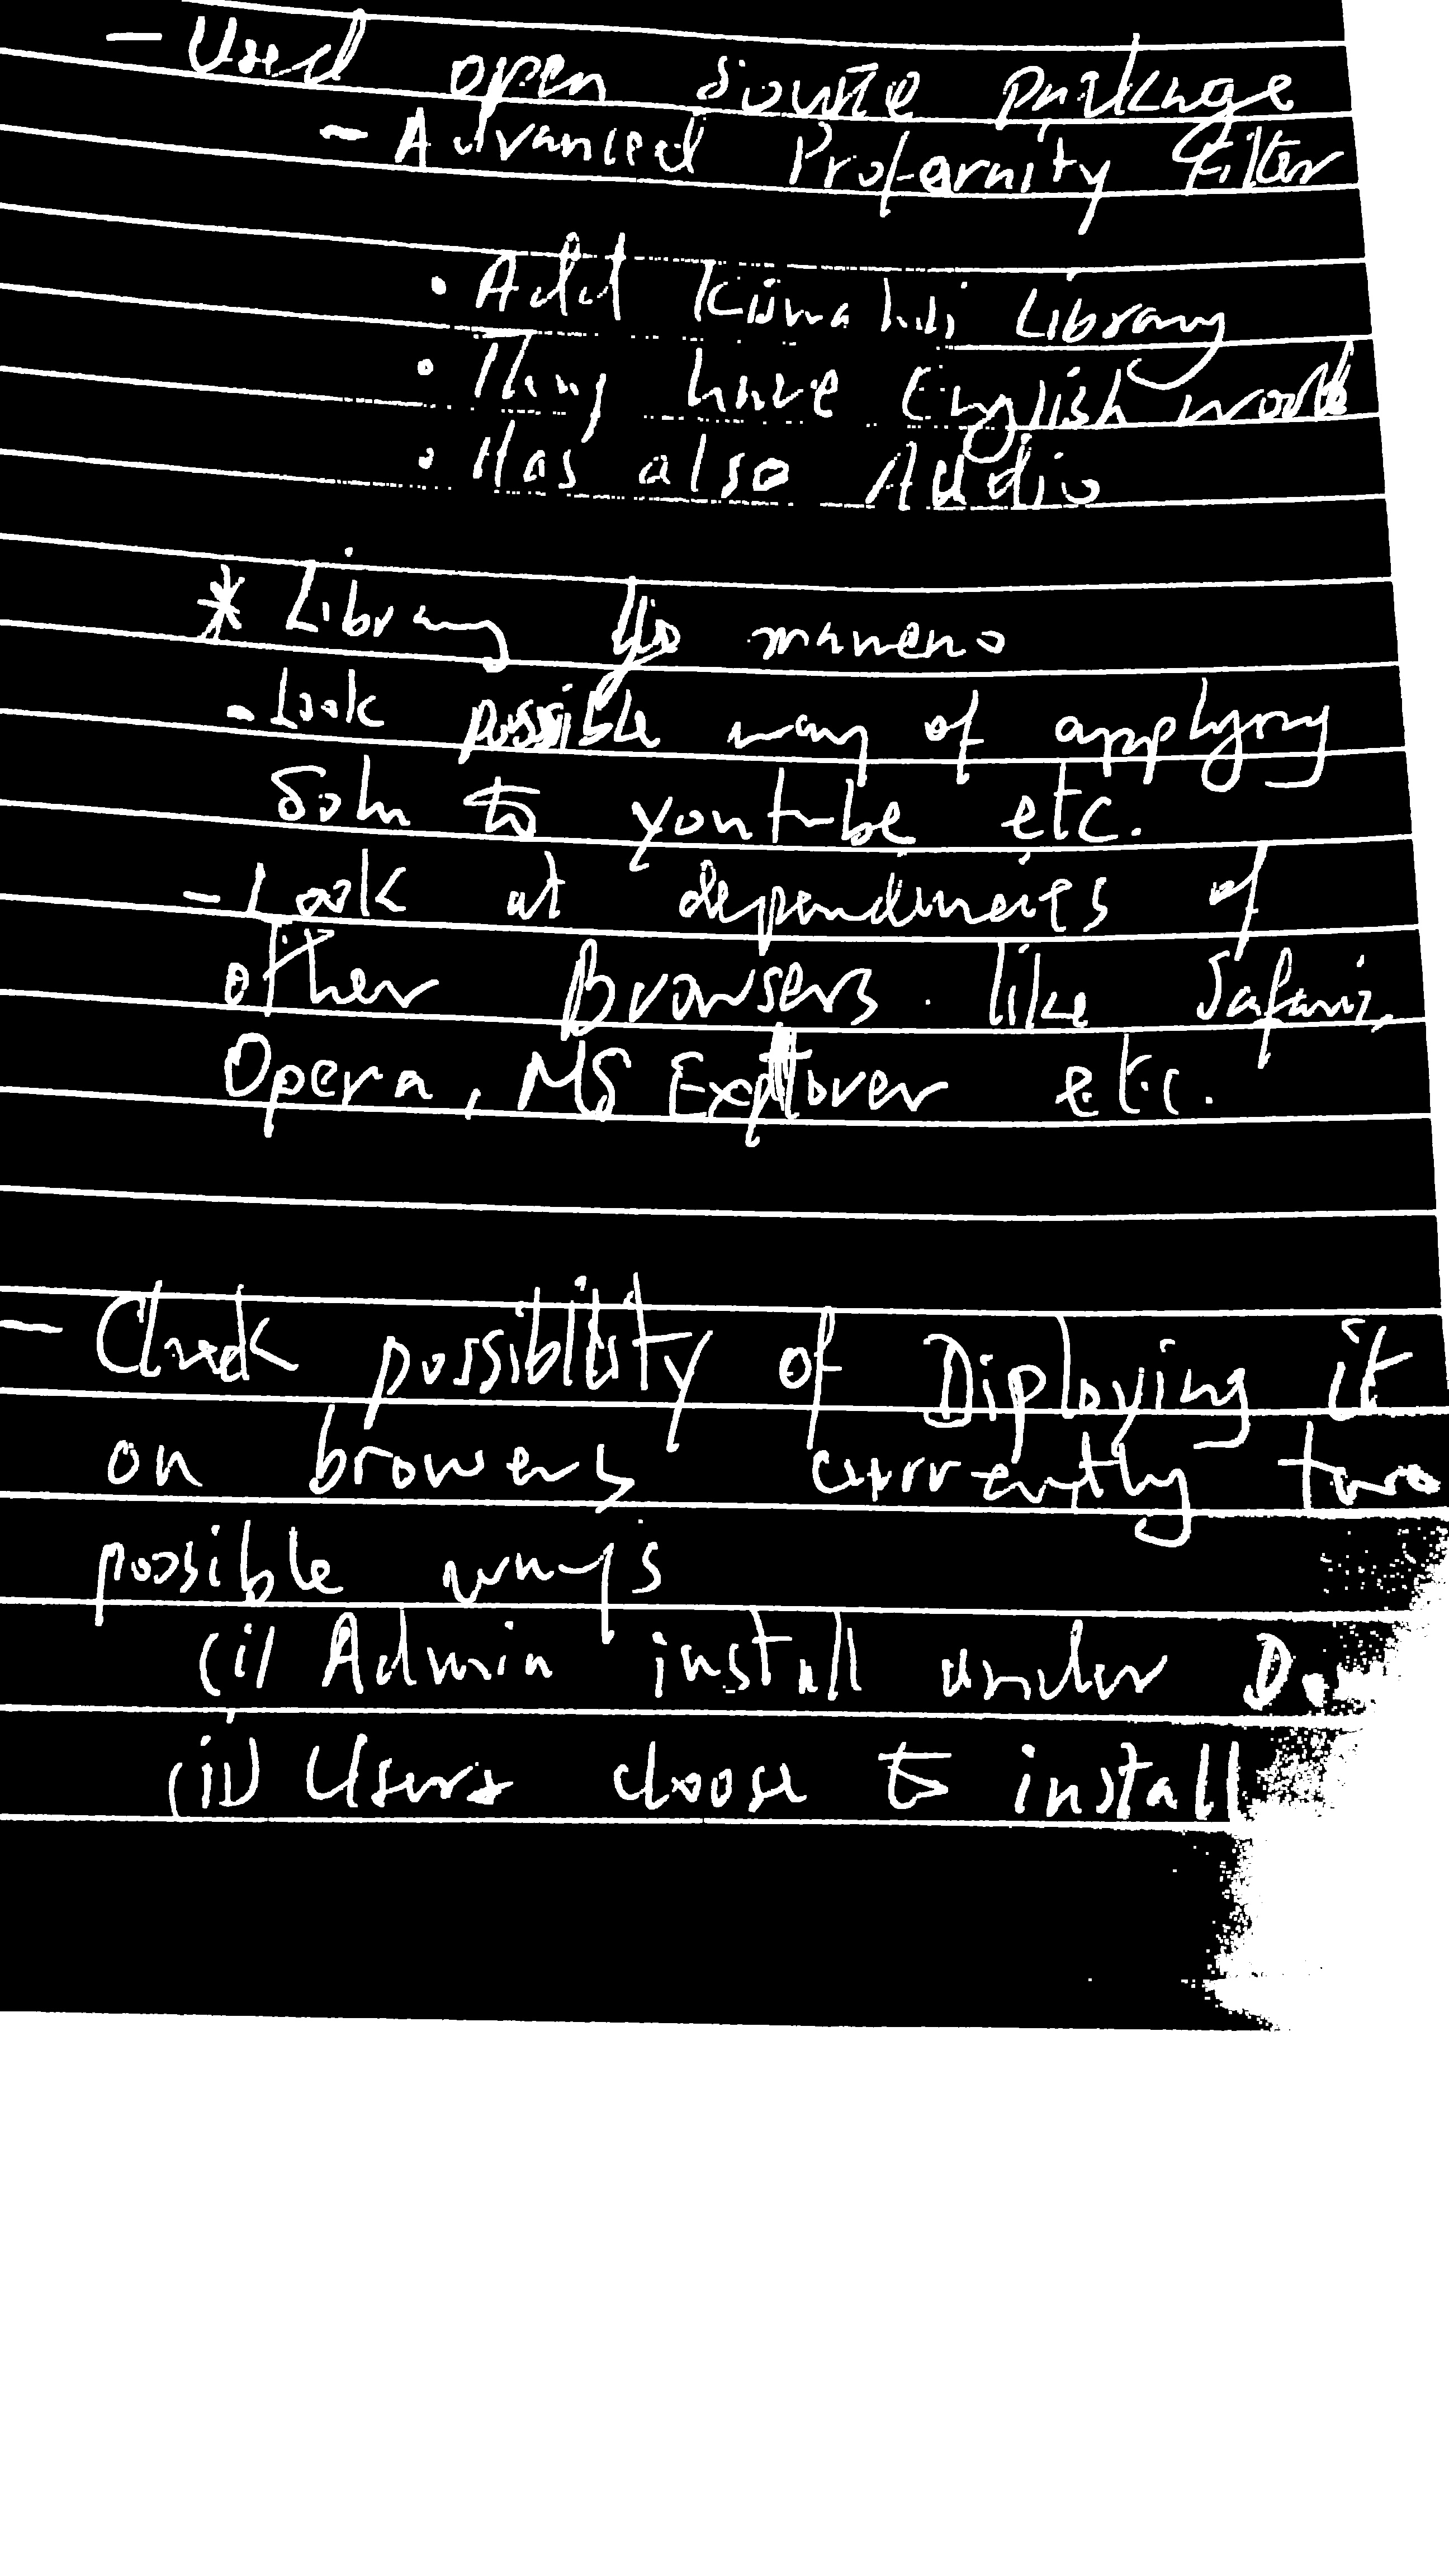 - Used open source package
- Advanced Profarnity Filter
• Add Kiswahili Library
• They have English words
• Has also Audio
* Library ya maneno
- Look possible way of applying
Soln to youtube etc.
- Look at dependincies of
other Browsers like Safari,
Opera, MS Explorer etc.
- Check possiblility of Diploying it
on browers currently two
possible ways
(i) Admin install under D.
(ii) Users choose to install